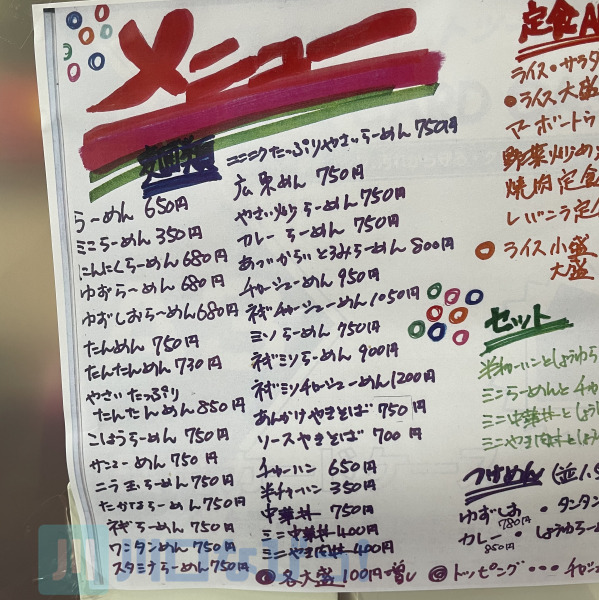 メニュー
麺類
らーめん 650円
ミニらーめん 350円
にんにくらーめん 680円
ゆずらーめん 680円
ゆずしおらーめん 680円
たんめん 750円
たんたんめん 730円
やさいたっぷり
たんたんめん 850円
こしょうらーめん 750円
サンマーめん 750円
ニラ玉らーめん 750円
たかならーめん 750円
ネギらーめん 750円
ワンタンめん 750円
スタミナらーめん 750円
ニンニクたっぷりやさいらーめん 750円
広東めん 750円
やさい炒らーめん 750円
カレーらーめん 750円
あつからとろみらーめん 800円
チャーシューめん 950円
ネギチャーシューめん 1050円
ミソらーめん 750円
ネギミソらーめん 900円
ネギミソチャーシューめん 1200円
あんかけやきそば 750円
ソースやきそば 700円
チャーハン 650円
半チャーハン 350円
中華丼 750円
ミニ中華丼 400円
ミニやき肉丼 400円
各大盛100円増し
定食
ライス・サラダ
ライス大盛
マーボードウ
野菜炒め
焼肉定食
レバニラ定
ライス小盛
大盛
セット
半チャーハンとしょうゆら
ミニらーめんとチャ
ミニ中華丼としょう
ミニやき肉丼としょ
つけめん (並1.5
ゆずしお ・タンタン
780円
カレー ・しょうゆら
850円
トッピング・・・チャシ